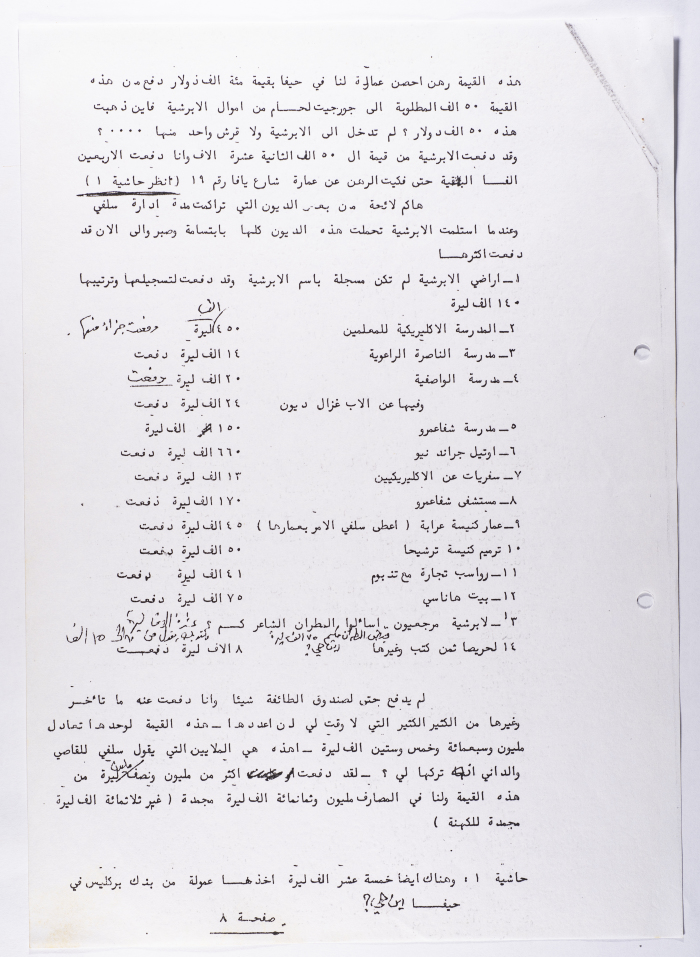 هذه القيمة رهن احصن عمارة لنا في حيفا بقيمة مئة الف دولار دفع من هذه
القيمة ٥٠ الف المطلوبة الى جورجيت لحام من اموال الابرشية فاين ذهبت
هذه ٥٠ الف دولار ؟ لم تدخل الى الابرشية ولا قرش واحد منها ٠٠٠٠ ؟
وقد دفعت الابرشية من قيمة ال ٥٠ الف الثانية عشرة الاف وانا دفعت الاربعين
الفا الباقية حتى فكيت الرهن عن عمارة شارع يافا رقم ١٩ ( انظر حاشية ١ )
هاكم لائحة من بعض الديون التي تراكمت مدة ادارة سلفي
وعندما استلمت الابرشية تحملت هذه الديون كلها بابتسامة وصبر والى الان قد
دفعت اكثرها
١ــ اراضي الابرشية لم تكن مسجلة باسم الابرشية وقد دفعت لتسجيلها وترتيبها
١٤٠ الف ليرة
٢ــ المدرسة الاكليريكية للمعلمين ٤٥٠ الف ليرة دفعت جزاء منها .
٣ــ مدرسة الناصرة الراعوية ١٤ الف ليرة دفعت
٤ــ مدرسة الواصفية ٢٠ الف ليرة دفعت
وفيها عن الاب غزال ديون ٢٤ الف ليرة دفعت
٥ــ مدرسة شفاعمرو ١٥٠ الف ليرة
٦ــ اوتيل جراند نيو ٦٦٠ الف ليرة دفعت
٧ــ سفريات عن الاكليريكيين ١٣ الف ليرة دفعت
٨ــ مستشفى شفاعمرو ١٧٠ الف ليرة دفعت
٩ــ عمار كنيسة عرابة ( اعطى سلفي الامر بعمارها ) ٤٥ الف ليرة دفعت
١٠ ترميم كنيسة ترشيحا ٥٠ الف ليرة دفعت
١١ــ رواسب تجارة مع تنبوم ٤١ الف ليرة دفعت
١٢ــ بيت هاناسي ٧٥ الف ليرة دفعت
١٣ــ لابرشية مرجعيون اسائلوا المطران الشاعر كم ؟
١٤ لحريصا ثمن كتب وغيرها ٨ الاف ليرة دفعت
لم يدفع حتى لصندوق الطائفة شيئا وانا دفعت عنه ما تأخر
وغيرها من الكثير الكثير التي لا وقت لي لان اعددها ــ هذه القيمة لوحدها تعادل
مليون وسبعمائة وخمس وستين الف ليرة ــ اهذه هي الملايين التي يقول سلفي للقاصي
والداني انه تركها لي ؟ ــ لقد دفعت اكثر من مليون ونصف مليون ليرة من
هذه القيمة ولنا في المصارف مليون وثمانمائة الف ليرة مجمدة ( غير ثلاثمائة الف ليرة
مجمدة للكهنة )
حاشية ١ : وهناك ايضا خمسة عشر الف ليرة اخذها عمولة من بنك بركليس في
حيفا اين هي ؟
صفحة ٨